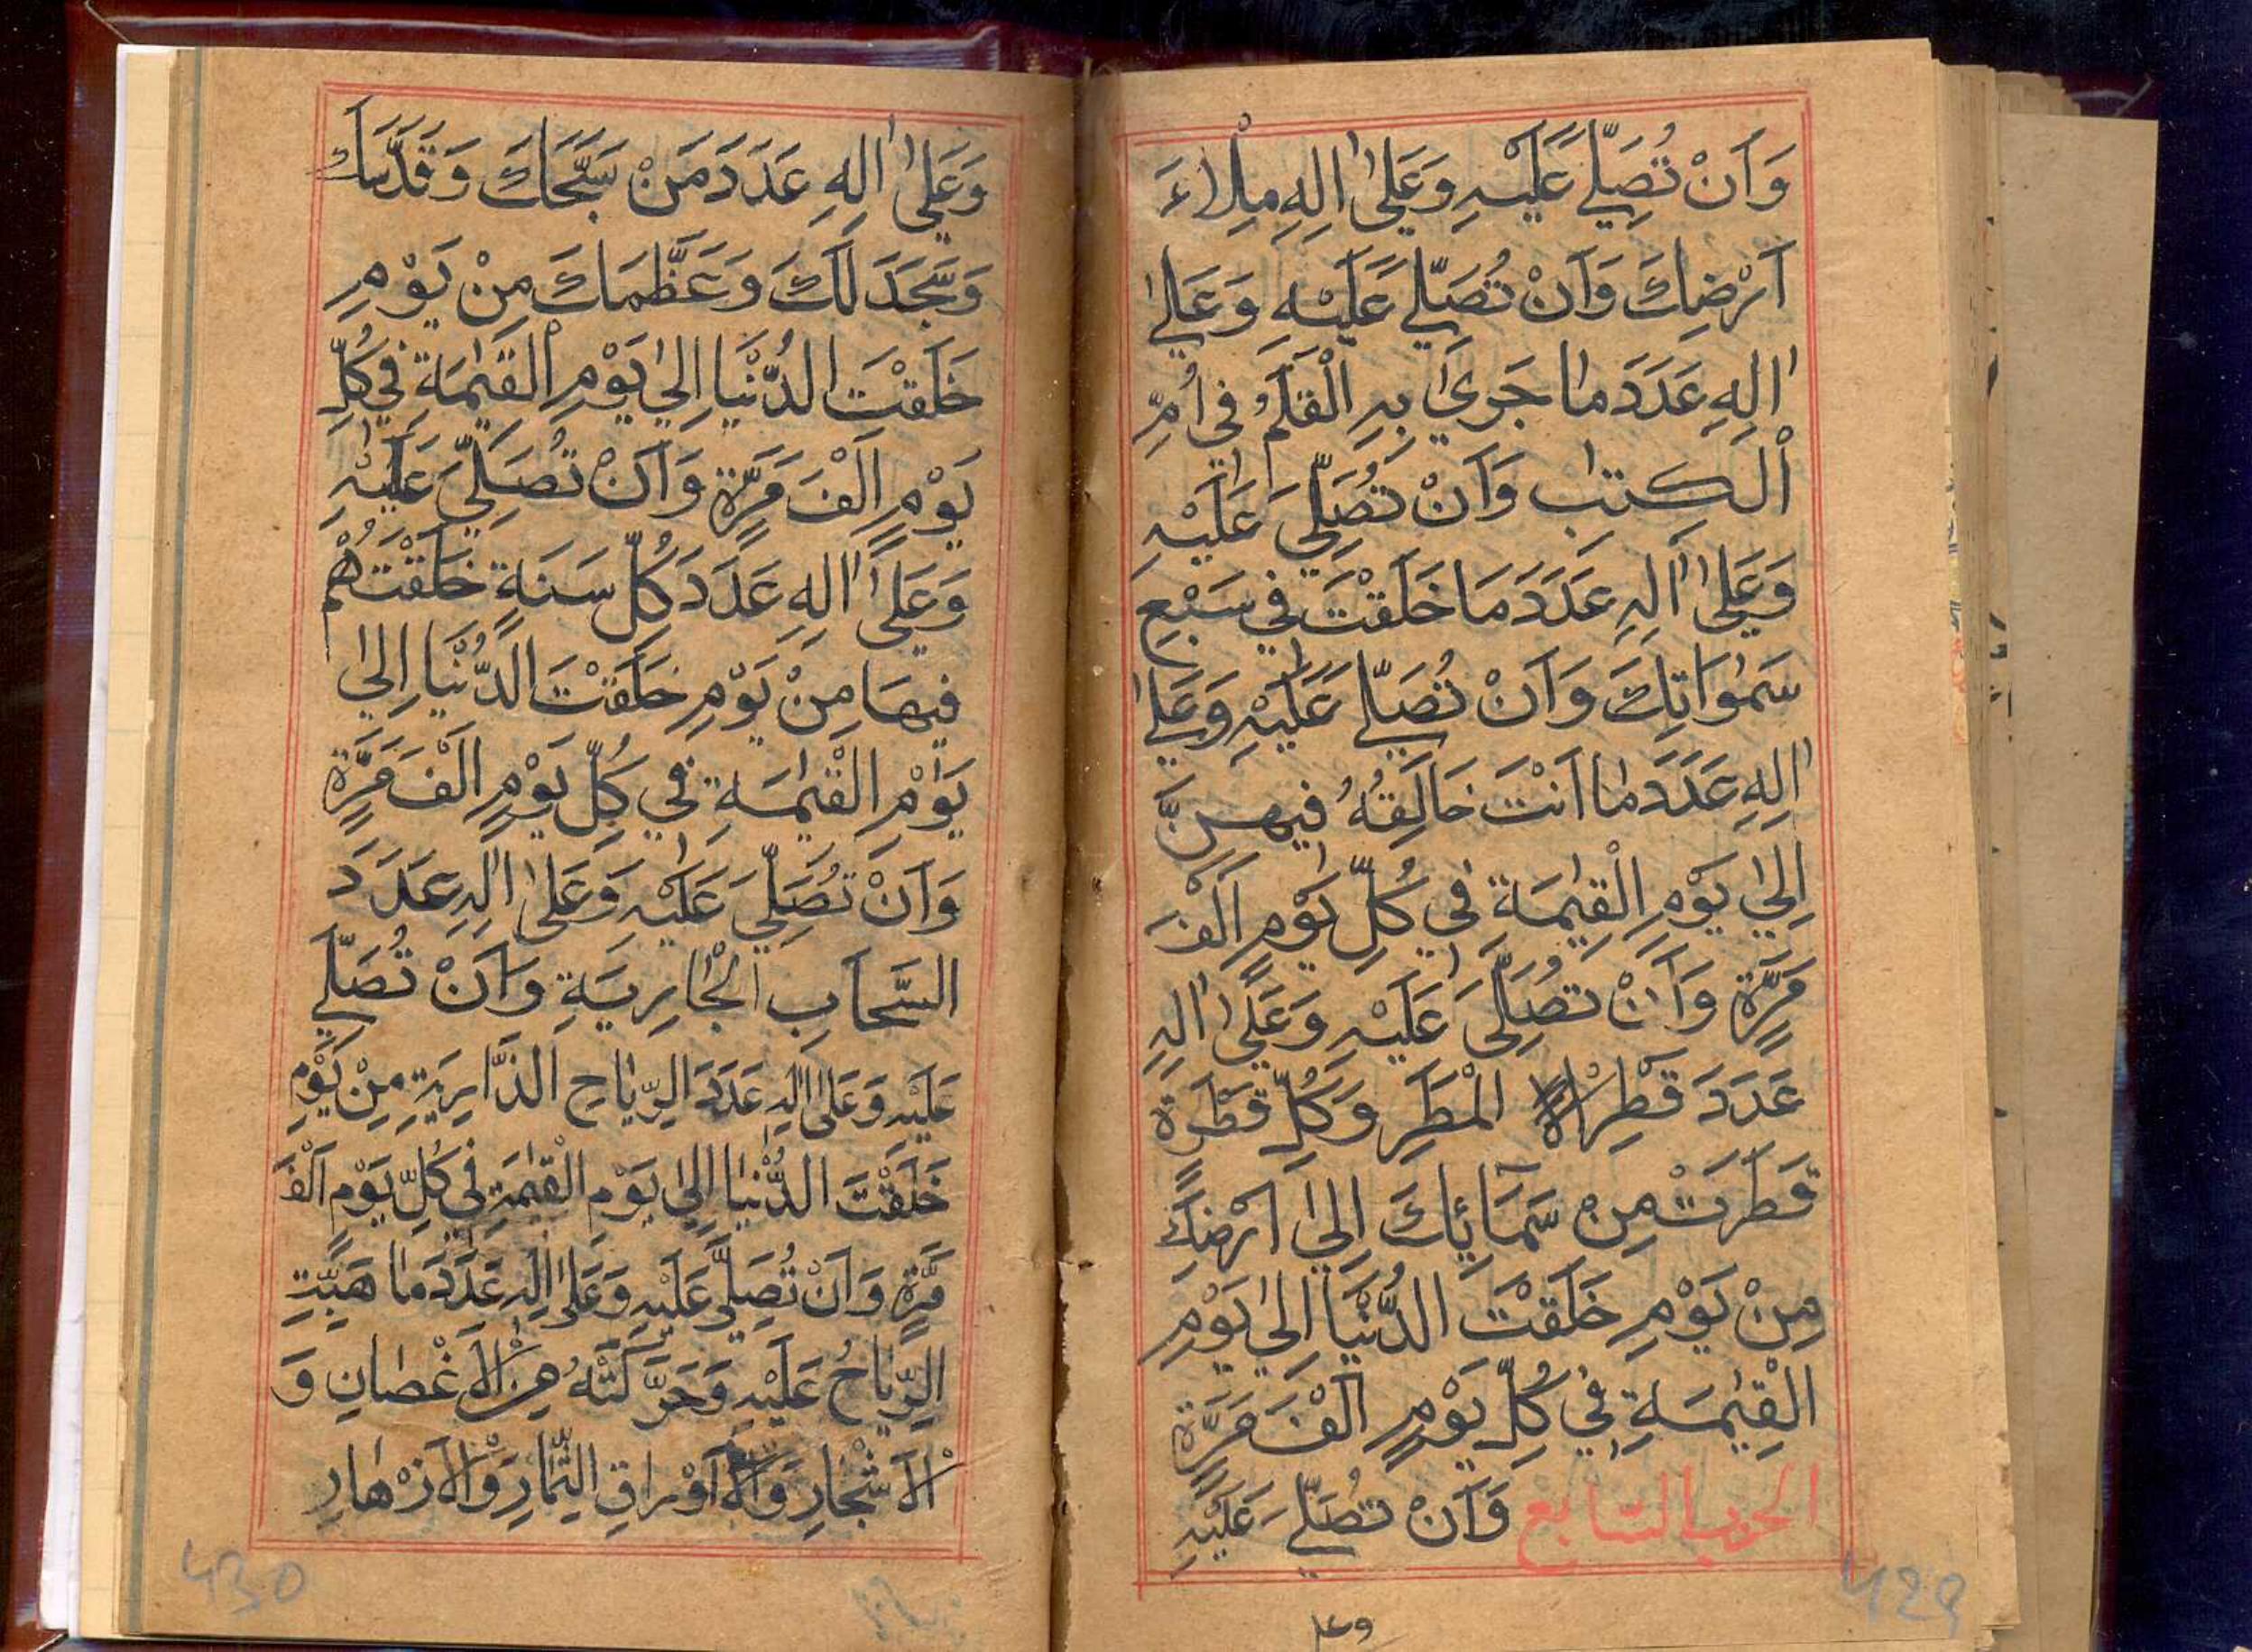 وَاَنْ تُصَلِّيَ عَلَيْهِ وَعَلىٰ اٰلِهِ مِلْاءَ
اَرْضِكَ وَاَنْ تُصَلِّيَ عَلَيْهِ وَعَلىٰ
اٰلِهِ عَدَدَ مٰا جَرىٰ بِهِ الْقَلَمُ فِي اُمِّ
الْكِتٰبِ وَاَنْ تُصَلِّيَ عَلَيْهِ
وَعَلىٰ اٰلِهِ عَدَدَ مَا خَلَقْتَ فِي سَبْعِ
سَمٰوَاتِكَ وَاَنْ تُصَلِّيَ عَلَيْهِ وَعَلىٰ
اٰلِهِ عَدَدَ مٰا اَنْتَ خَالِقُهُ فِيهِنَّ
اِلىٰ يَوْمِ الْقِيٰمَةِ فِي كُلِّ يَوْمٍ اَلْفَ
مَرَّةٍ وَاَنْ تُصَلِّيَ عَلَيْهِ وَعَلىٰ اٰلِهِ
عَدَدَ قَطْرِ الْمَطَرِ وَكُلِّ قَطْرَةٍ
قَطَرَتْ مِنْ سَمَائِكَ اِلىٰ اَرْضِكَ
مِنْ يَوْمِ خَلَقْتَ الدُّنْيَا اِلىٰ يَوْمِ
الْقِيٰمَةِ فِي كُلِّ يَوْمٍ اَلْفَ مَرَّةٍ
الحزب السابع وَاَنْ تُصَلِّيَ عَلَيْهِ
وعلى
429
وَعَلىٰ اٰلِهِ عَدَدَ مَنْ سَبَّحَكَ وَقَدَّسَكَ
وَسَجَدَ لَكَ وَعَظَّمَكَ مِنْ يَوْمِ
خَلَقْتَ الدُّنْيَا اِلىٰ يَوْمِ الْقِيٰمَةِ فِي كُلِّ
يَوْمٍ اَلْفَ مَرَّةٍ وَاَنْ تُصَلِّيَ عَلَيْهِ
وَعَلىٰ اٰلِهِ عَدَدَ كُلِّ سَنَةٍ خَلَقْتَهُمْ
فِيهَا مِنْ يَوْمِ خَلَقْتَ الدُّنْيَا اِلىٰ
يَوْمِ الْقِيٰمَةِ فِي كُلِّ يَوْمٍ اَلْفَ مَرَّةٍ
وَاَنْ تُصَلِّيَ عَلَيْهِ وَعَلىٰ اٰلِهِ عَدَدَ
السَّحَابِ الْجَارِيَةِ وَاَنْ تُصَلِّيَ
عَلَيْهِ وَعَلىٰ اٰلِهِ عَدَدَ الرِّيٰاحِ الذَّارِيَةِ مِنْ يَوْمِ
خَلَقْتَ الدُّنْيٰا اِلىٰ يَوْمِ الْقِيٰمَةِ فِي كُلِّ يَوْمٍ اَلْفَ
مَرَّةٍ وَاَنْ تُصَلِّيَ عَلَيْهِ وَعَلىٰ اٰلِهِ عَدَدَ مٰا هَبَّتِ
الرِّيٰاحُ عَلَيْهِ وَحَرَّكَتْهُ مِنَ الْاَغْصٰانِ وَ
الْاَشْجٰارِ وَالْاَوْرٰاقِ الثِّمٰارِ وَالْاَزْهٰارِ
430